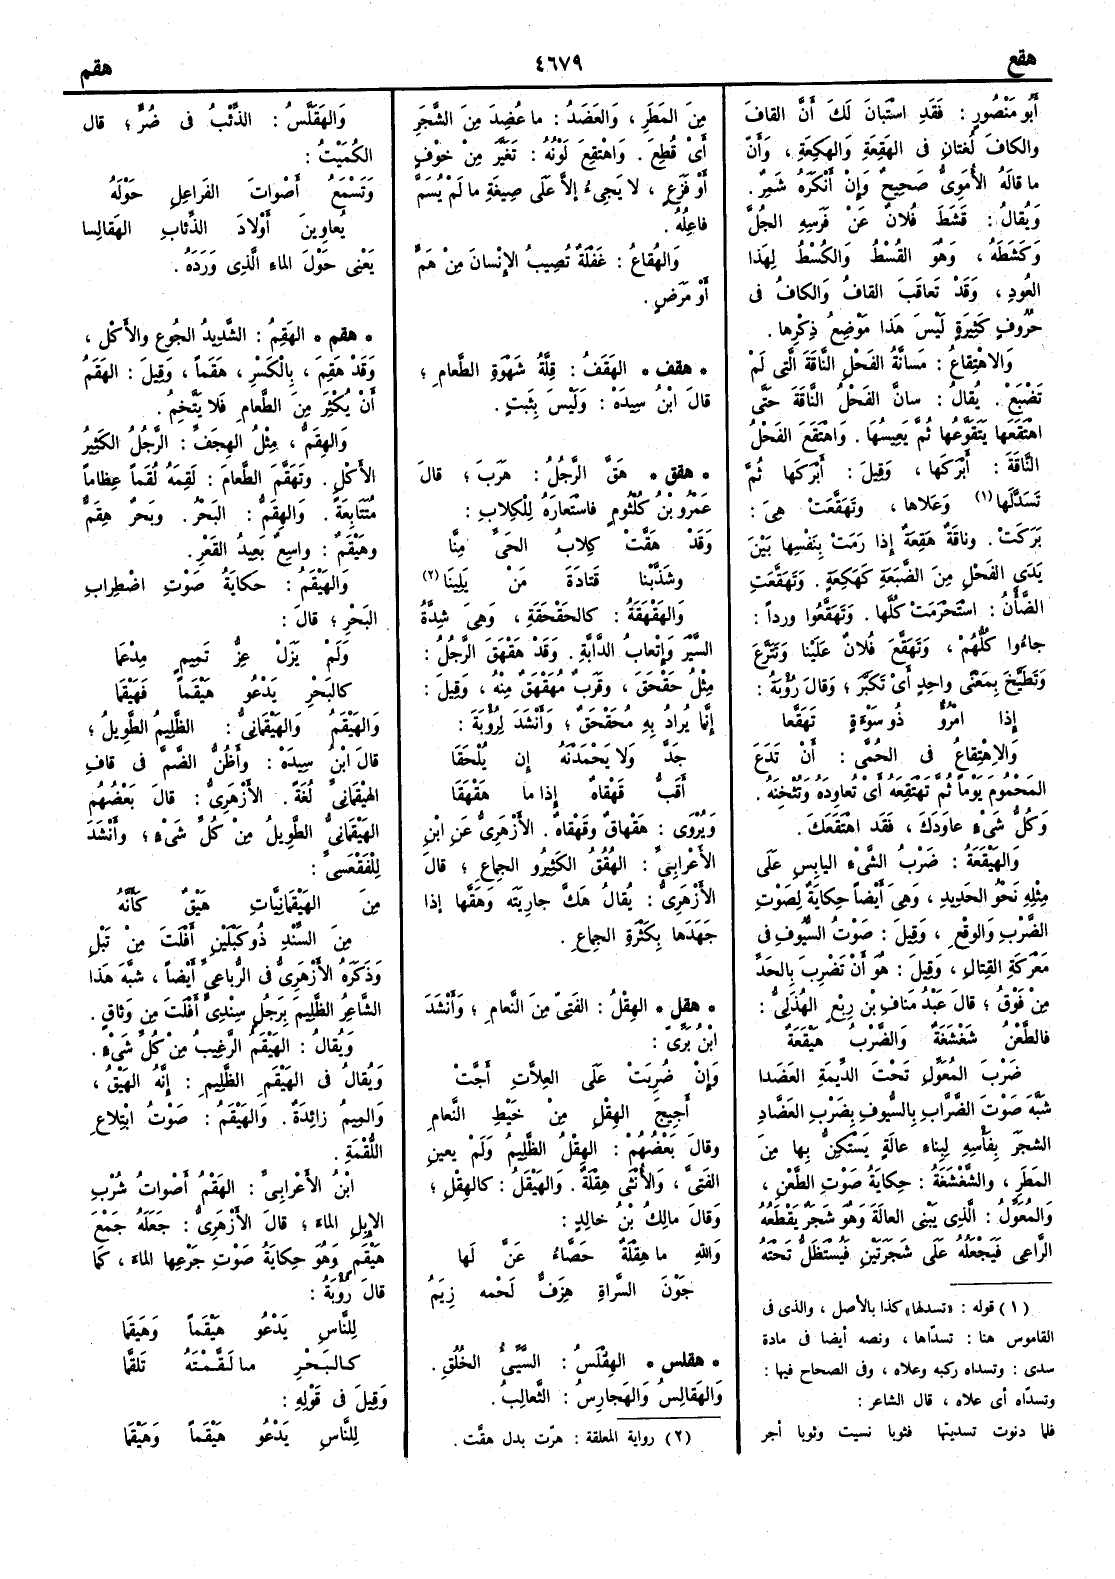 هقع
٤٦٧٩
هقم
أَبُو مَنْصُورٍ : فَقَدِ اسْتَبانَ لَكَ أَنَّ القافَ
والكافَ لُغتانِ فى الهَقِعَةِ والهَكِعَةِ ، وَأَنَّ
ما قالَهُ الأُمَوِىُّ صَحِيحٌ وَإِنْ أَنْكَرَهُ شَمِرٌ .
وَيُقالُ : قَشَطَ فُلانٌ عَنْ فَرَسِهِ الجُلَّ
وَكَشَطَهُ ، وَهُوَ القُسْطُ والكُسْطُ لِهَذا
العُودِ ، وَقَدْ تَعاقَبَ القافُ وَالكافُ فى
حُرُوفٍ كَثِيرَةٍ لَيْسَ هَذا مَوْضِعَ ذِكْرِها .
وَالاهْتِقاعُ : مُسانَّةُ الفَحْلِ النَّاقَةَ الَّتِى لَمْ
تَضْبَعْ . يُقالُ : سانَّ الفَحْلُ النَّاقَةَ حَتَّى
اهْتَقَعَها يَتَقَوَّعُها ثُمَّ يَعِيسُها . وَاهْتَقَعَ الفَحْلُ
النَّاقَةَ : أَبْرَكَها ، وَقِيلَ : أَبْرَكَها ثُمَّ
تَسَدَّلَها (١) وَعَلاها ، وَتَهَقَّعَتْ هِىَ :
بَرَكَتْ . وناقَةٌ هَقِعَةٌ إِذا رَمَتْ بِنَفْسِها بَيْنَ
يَدَىِ الفَحْلِ مِنَ الضَّبَعَةِ كَهَكِعَةٍ . وَتَهَقَّعَتِ
الضَّأْنُ : اسْتَحْرَمَتْ كُلُّها . وَتَهَقَّعُوا وِرْداً :
جاءُوا كُلُّهُمْ ، وَتَهَقَّعَ فُلانٌ عَلَيْنا وَتَتَرَّعَ
وَتَطَيَّخَ بِمَعْنًى واحِدٍ أَىْ تَكَبَّرَ ؛ وَقالَ رُؤْبَةُ :
إِذا امْرُؤٌ ذُو سَوْءَةٍ تَهَقَّعا
وَالاهْتِقاعُ فى الحُمَّى : أَنْ تَدَعَ
المَحْمُومَ يَوْماً ثُمَّ تَهْتَقِعَهُ أَىْ تُعاوِدَهُ وَتُثْخِنَهُ .
وَكُلُّ شَىْءٍ عاوَدَكَ ، فَقَدِ اهْتَقَعَكَ .
وَالهَيْقَعَةُ : ضَرْبُ الشَّىْءِ اليابِسِ عَلَى
مِثْلِهِ نَحْوُ الحَدِيدِ ، وَهِىَ أَيْضاً حِكايَةٌ لِصَوْتِ
الضَّرْبِ وَالوَقْعِ ، وَقِيلَ : صَوْتُ السُّيُوفِ فى
مَعْرَكَةِ القِتالِ ، وَقِيلَ : هُوَ أَنْ تَضْرِبَ بِالحَدِّ
مِنْ فَوْقُ ؛ قالَ عَبْدُ مَنافِ بْنِ رِبْعٍ الهُذَلِىُّ :
فالطَّعْنُ شَغْشَغَةٌ وَالضَّرْبُ هَيْقَعَةٌ
ضَرْبَ المُعَوِّلِ تَحْتَ الدِّيمَةِ العَضَدا
شَبَّهَ صَوْتَ الضَّرَّابِ بِالسُّيُوفِ بِضَرْبِ العَضَّادِ
الشَّجَرَ بِفَأْسِهِ لِبِناءِ عالَةٍ يَسْتَكِنُّ بِها مِنَ
المَطَرِ ، والشَّغْشَغَةُ : حِكايَةُ صَوْتِ الطَّعْنِ ،
وَالمُعَوِّلُ : الَّذِى يَبْنِى العالَةَ وَهُوَ شَجَرٌ يَقْطَعُهُ
الرَّاعِى فَيَجْعَلُهُ عَلَى شَجَرَتَيْنِ فَيَسْتَظِلُّ تَحْتَهُ
(١) قوله : «تسدلها» كذا بالأصل ، والذى فى
القاموس هنا : تسدّاها ، ونصه أيضا فى مادة
سدى : وتسداه ركبه وعلاه ، وفى الصحاح فيها :
وتسدّاه أى علاه ، قال الشاعر :
فلما دنوت تسديتها فثوبا نسيت وثوبا أجر
مِنَ المَطَرِ ، وَالعَضَدُ : ما عُضِدَ مِنَ الشَّجَرِ
أَىْ قُطِعَ . وَاهْتُقِعَ لَوْنُهُ : تَغَيَّرَ مِنْ خَوْفٍ
أَوْ فَزَعٍ ، لا يَجِىءُ إِلاَّ عَلَى صِيغَةِ ما لَمْ يُسَمَّ
فاعِلُهُ .
وَالهُقاعُ : غَفْلَةٌ تُصِيبُ الإِنْسانَ مِنْ هَمٍّ
أَوْ مَرَضٍ .
• هقف • الهَقَفُ : قِلَّةُ شَهْوَةِ الطَّعامِ ؛
قالَ ابْنُ سِيدَهْ : وَلَيْسَ بِثَبْتٍ .
• هقق • هَقَّ الرَّجُلُ : هَرَبَ ؛ قالَ
عَمْرُو بْنُ كُلْثُومٍ فاسْتَعارَهُ لِلْكِلابِ :
وَقَدْ هَقَّتْ كِلابُ الحَىِّ مِنَّا
وشَذَّبْنا قَتادَةَ مَنْ يَلِينَا (٢)
وَالهَقْهَقَةُ : كالحَقْحَقَةِ ، وَهِىَ شِدَّةُ
السَّيْرِ وَإِتْعابُ الدَّابَّةِ . وَقَدْ هَقْهَقَ الرَّجُلُ :
مِثْلُ حَقْحَقَ ، وَقَرَبٌ مُهَقْهِقٌ مِنْهُ ، وَقِيلَ :
إِنَّما يُرادُ بِهِ مُحَقْحَقٌ ؛ وَأَنْشَدَ لِرُؤْبَةَ :
جَدَّ وَلا يَحْمَدْنَهُ إِنْ يُلْحَقَا
أَقَبُّ قَهْقاهٌ إِذا ما هَقْهَقَا
وَيُرْوَى : هَقْهاقٌ وقَهْقاهٌ . الأَزْهَرِىُّ عَنِ ابْنِ
الأَعْرابِىِّ : الهُقُقُ الكَثِيرُو الجِماعِ ؛ قالَ
الأَزْهَرِىُّ : يُقالُ هَكَّ جارِيَتَهُ وَهَقَّها إِذا
جَهَدَها بِكَثْرَةِ الجِماعِ .
• هقل • الهِقْلُ : الفَتِىُّ مِنَ النَّعامِ ؛ وَأَنْشَدَ
ابْنُ بَرِّىّ :
وَإِنْ ضُرِبَتْ عَلَى العِلاَّتِ أَجَّتْ
أَجِيجَ الهِقْلِ مِنْ خَيْطِ النَّعامِ
وقالَ بَعْضُهُمْ : الهِقْلُ الظَّلِيمُ وَلَمْ يعينِ
الفَتِىَّ ، وَالأُنْثَى هِقْلَةٌ . وَالهَيْقَلُ : كالهِقْلِ ؛
وَقالَ مالِكُ بْنُ خالِدٍ :
وَاللهِ ما هِقْلَةٌ حَصَّاءُ عَنَّ لَها
جَوْنَ السَّراةِ هِزَفٌّ لَحْمه زِيَمُ
• هقلس • الهِقْلِسُ : السَّيِّئُ الخُلُقِ .
وَالهَقالِسُ وَالهَجارِسُ : الثَّعالِبُ .
(٢) رواية المعلقة : هرّت بدل هقّت .
وَالهَقَلَّسُ : الذِّئْبُ فى ضُرٍّ ؛ قال
الكُمَيْتُ :
وَتَسْمَعُ أَصْواتَ الفَراعِلِ حَوْلَهُ
يُعاوِينَ أَوْلادَ الذِّئابِ الهَقالِسا
يَعْنِى حَوْلَ الماءِ الَّذِى وَرَدَهُ .
• هقم • الهَقِمُ : الشَّدِيدُ الجُوعِ والأَكْلِ ،
وَقَدْ هَقِمَ ، بِالْكَسْرِ ، هَقَماً ، وَقِيلَ : الهَقَمُ
أَنْ يُكْثِرَ مِنَ الطَّعامِ فَلا يَتَّخِمُ .
وَالهِقَمُّ ، مِثْلُ الهِجَفِّ : الرَّجُلُ الكَثِيرُ
الأَكْلِ . وَتَهَقَّمَ الطَّعامَ : لَقِمَهُ لُقَماً عِظاماً
مُتَتَابِعَةً . وَالهِقَمُّ : البَحْرُ . وبَحرٌ هِقَمٌّ
وهَيْقَمٌ : واسِعٌ بَعِيدُ القَعْرِ .
وَالهَيْقَمُ : حِكايَةُ صَوْتِ اضْطِرابِ
البَحْرِ ؛ قالَ :
وَلَمْ يَزَلْ عِزُّ تَمِيمٍ مِدْعَما
كالبَحْرِ يَدْعُو هَيْقَماً فَهَيْقَما
وَالهَيْقَمُ وَالهَيْقَمانِىُّ : الظَّلِيمُ الطَّوِيلُ ؛
قالَ ابْنُ سِيدَهْ : وأَظُنُّ الضَّمَّ فى قافِ
الهيْقَمانِىِّ لُغَةً . الأَزْهَرِىُّ : قالَ بَعْضُهُم
الهَيْقَمانِىُّ الطَّوِيلُ مِنْ كُلِّ شَىْءٍ ؛ وَأَنْشَدَ
لِلْفَقْعَسِىِّ :
مِنَ الهَيْقَمانِيَّاتِ هَيْقٌ كَأَنَّهُ
مِنَ السِّنْدِ ذُو كَبْلَيْنِ أَفْلَتَ مِنْ تَبْلِ
وَذَكَرَهُ الأَزْهَرِىُّ فى الرُّباعِىِّ أَيْضاً ، شَبَّهَ هَذا
الشَّاعِرُ الظَّلِيمَ بِرَجُلٍ سِنْدِىٍّ أَفْلَتَ مِنْ وَثاقٍ .
وَيُقالُ : الهَيْقَمُ الرَّغِيبُ مِنْ كُلِّ شَىْءٍ .
وَيُقالُ فى الهَيْقَمِ الظَّلِيمِ : إِنَّهُ الهَيْقُ ،
وَالمِيمُ زائِدَةٌ . وَالهَيْقَمُ : صَوْتُ ابْتِلاعِ
اللُّقْمَةِ .
ابْنُ الأَعْرابِىِّ : الهَقْمُ أَصْواتُ شُرْبِ
الإِبِلِ الماءَ ؛ قالَ الأَزْهَرِىُّ : جَعَلَهُ جَمْعَ
هَيْقَمٍ وَهُوَ حِكايَةُ صَوْتِ جَرْعِها الماءَ ، كَما
قالَ رُؤْبَةُ :
لِلنَّاسِ يَدْعُو هَيْقَماً وَهَيْقَما
كالبَحْرِ ما لَقَّمْتَهُ تَلَقَّما
وَقِيلَ فى قَوْلِهِ :
لِلنَّاسِ يَدْعُو هَيْقَماً وَهَيْقَما